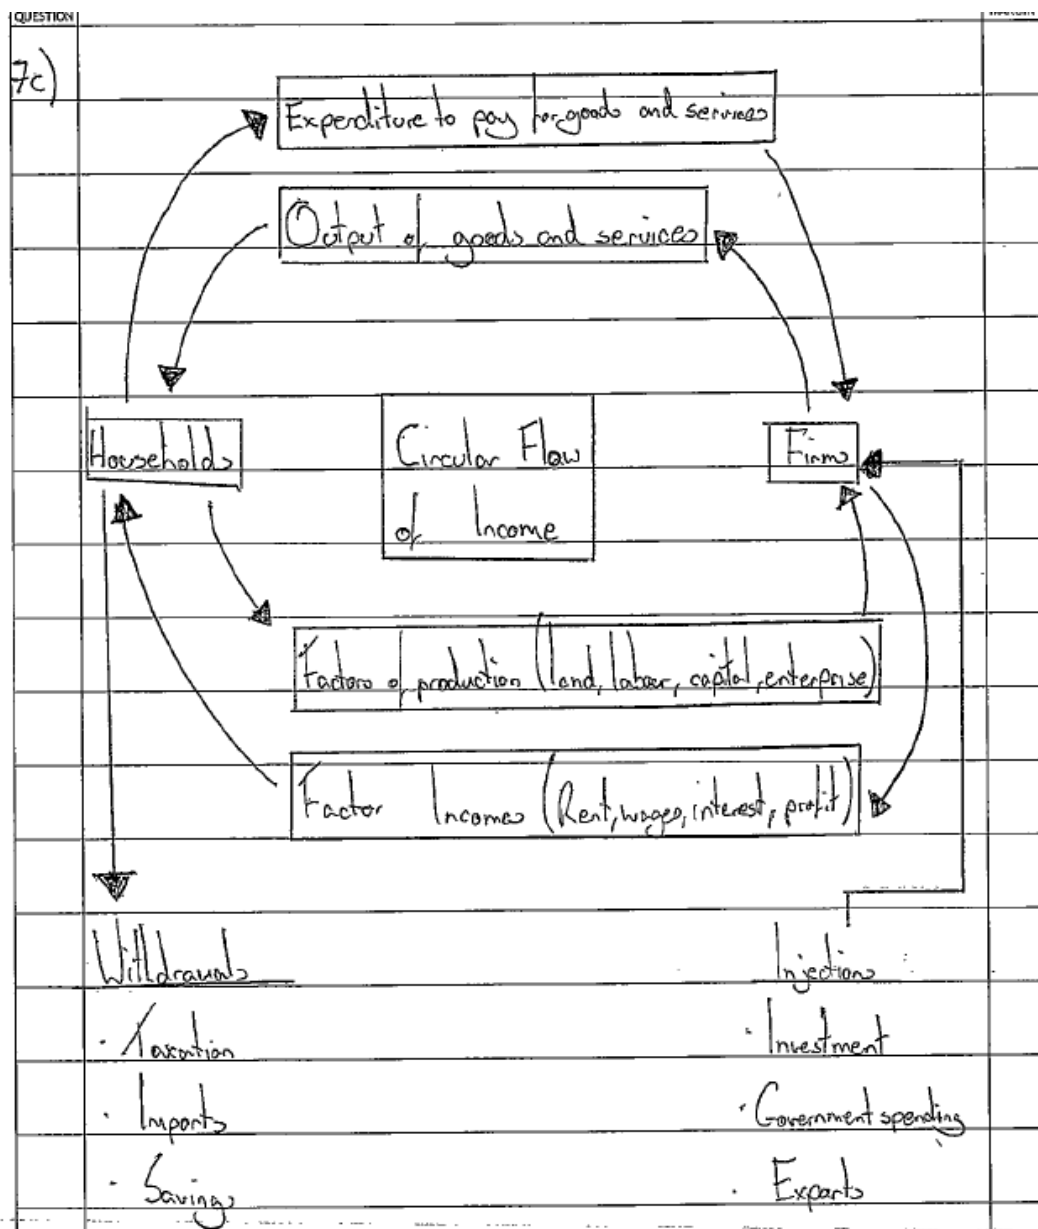 QUESTION
7c)
Expenditure to pay for goods and services
Output of goods and services
Households
Circular Flow
of Income
Firms
Factors of production (land, labour, capital, enterprise)
Factor Incomes (Rent, wages, interest, profit)
Withdrawals
Injections
· Taxation
· Investment
· Imports
· Government spending
· Savings
· Exports